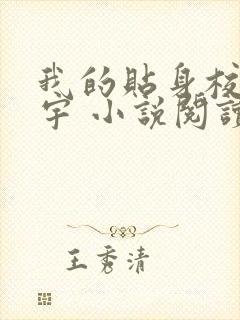 我的貼身校
宇 小說閱讀
王秀清